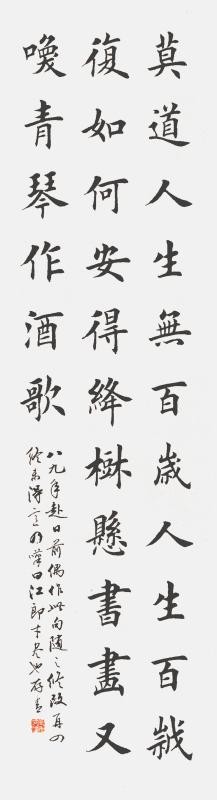 莫道人生無百歲人生百歲
復如何安得絳樹懸書畫又
喚青琴作酒歌
八九年赴日前偶作此句隨之修改再四
終未得意乃嘆曰江郎才尽也存青